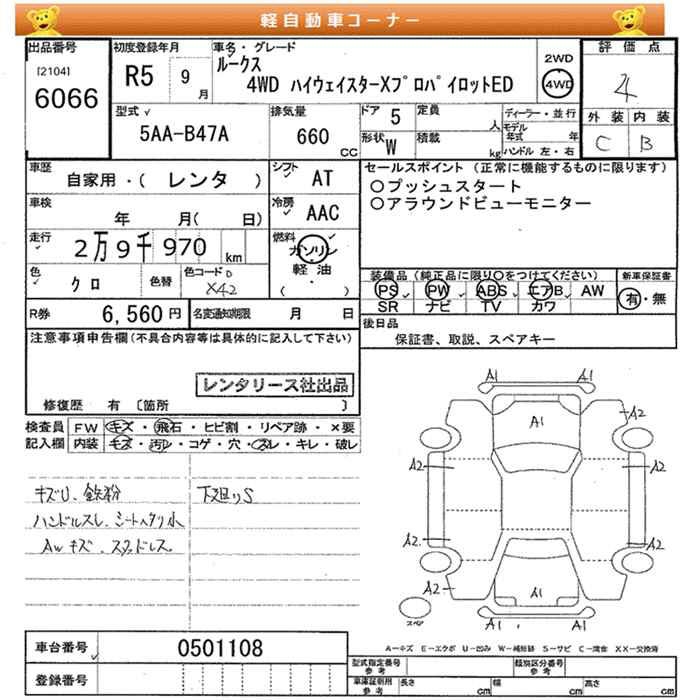 軽自動車コーナー
出品番号 初度登録年月 車名・グレード 評価点
[2104]
6066
R5 9月
ルークス
4WD ハイウェイスターXプロパイロットED
2WD
4WD
4
型式 排気量 ドア 5 定員 人 ディーラー・並行 外装 内装
5AA-B47A 660 CC
形状 W 積載 kg
モデル年式 年
ハンドル 左・右
C B
車歴 シフト セールスポイント (正常に機能するものに限ります)
自家用・( レンタ ) AT
○プッシュスタート
○アラウンドビューモニター
車検 年 月( 日) 冷房 AAC
走行 2万9千970 km 燃料 ガソリン
軽油
・( )
色 クロ 色替 色コード D
X42
装備品 (純正品に限り○をつけてください) 新車保証書
PS PW ABS エアB AW 有・無
SR ナビ TV カワ
R券 6,560円 名変通知期限 月 日
後日品
保証書、取説、スペアキー
注意事項申告欄 (不具合内容等は具体的に記入して下さい)
レンタリース社出品
修復歴 有 〔箇所 〕
検査員 FW キズ・飛石・ヒビ割・リペア跡・×要
記入欄 内装 キズ・汚レ・コゲ・穴・スレ・キレ・破レ
キズU、鉄粉 下廻りS
ハンドルスレ、シートヘタリ小
AWキズ、スタッドレス
A1 A1
A1
A2 A2
A2 A2
A2 A2
A2 A2
A1
A1 A1
スペア
A−キズ E−エクボ U−凹み W−補修跡 S−サビ C−腐食 XX−交換済
車台番号 0501108
登録番号
型式指定番号 参考 類別区分番号 参考
車庫証明用 参考 長さ cm 幅 cm 高さ cm